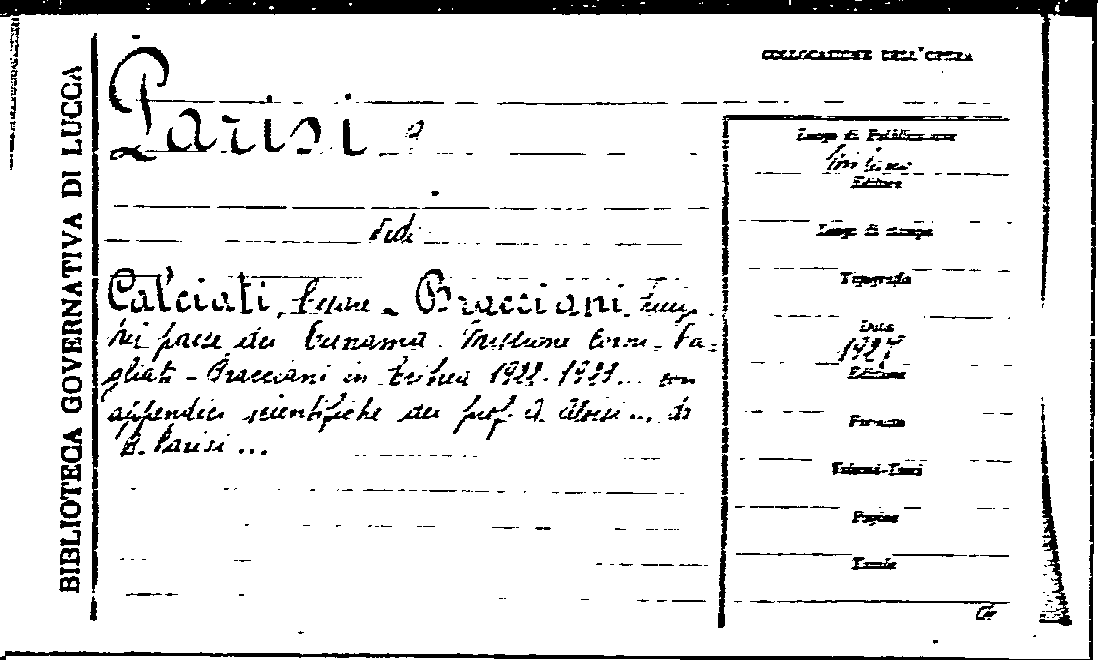 BIBLIOTECA GOVERNATIVA DI LUCCA
COLLOCAZIONE DELL'OPERA
Parisi
vedi
Calciati, Cesare - Bracciani, Luigi
Nel paese dei Cunama. Missione Corni-
gliati-Bracciani in Eritrea 1922-1923... con
appendici scientifiche dei prof. A. Aloisi... di
B. Parisi...
Luogo di Pubblicazione
Editore
Luogo di stampa
Tipografia
Data
1927
Edizione
Formato
Volumi-Tomi
Pagine
Tavole